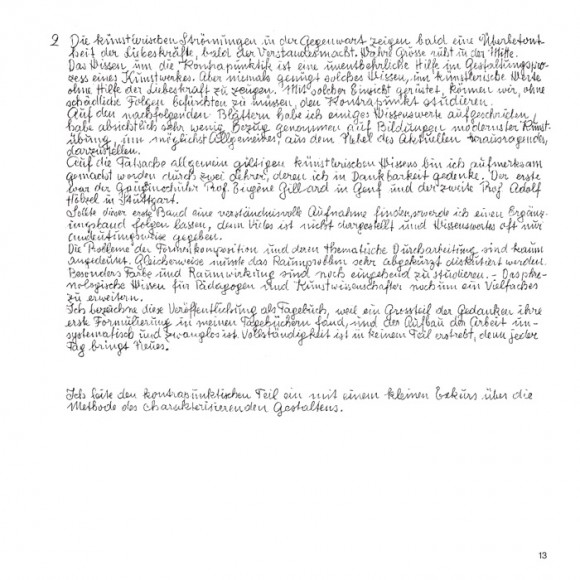 2 Die künstlerischen Strömungen in der Gegenwart zeigen bald eine Überbetont-
heit der Liebeskräfte, bald der Verstandesmacht. Wahre Grösse ruht in der Mitte.
Das Wissen um die Kontrapunktik ist eine unentbehrliche Hilfe im Gestaltungspro-
zess eines Kunstwerkes. Aber niemals genügt solches Wissen, um künstlerische Werte
ohne Hilfe der Liebeskraft zu zeugen. Mit solcher Einsicht gerüstet, können wir, ohne
schädliche Folgen befürchten zu müssen, den Kontrapunkt studieren.
Auf den nachfolgenden Blättern habe ich einiges Wissenswerte aufgeschrieben,
habe absichtlich sehr wenig Bezug genommen auf Bildungen modernster Kunst-
übung, um möglichst Allgemeines, aus dem Pegel des Aktuellen herausragendes,
darzustellen.
Auf die Tatsache allgemein gültigen künstlerischen Wissens bin ich aufmerksam
gemacht worden durch zwei Lehrer, deren ich in Dankbarkeit gedenke. Der erste
war der Prof. Eugène Gilliard in Genf und der zweite Prof Adolf
Hölzel in Stuttgart.
Sollte dieser erste Band eine verständnisvolle Aufnahme finden, werde ich einen Ergänz-
ungsband folgen lassen, denn Vieles ist nicht dargestellt und Wissenswertes oft nur
andeutungsweise gegeben.
Die Probleme der Formenkomposition und deren thematische Durcharbeitung sind kaum
angedeutet. Gleicherweise müsste das Raumproblem sehr abgekürzt diskutiert werden.
Besonders Farbe und Raumwirkung sind noch eingehend zu studieren. – Das phä-
nologische Wissen für Pädagogen und Kunstwissenschafter noch um ein Vielfaches
zu erweitern.
Ich bezeichne diese Veröffentlichung als Tagebuch, weil ein Grossteil der Gedanken ihre
erste Formulierung in meinen Tagebüchern fand, und der Aufbau der Arbeit un-
systematisch und zwanglos ist. Vollständigkeit ist in keinem Teil erstrebt, denn jeder
Tag bringt Neues.
Ich leite den kontrapunktischen Teil ein mit einem kleinen Exkurs über die
Methode des charakterisierenden Gestaltens.
13